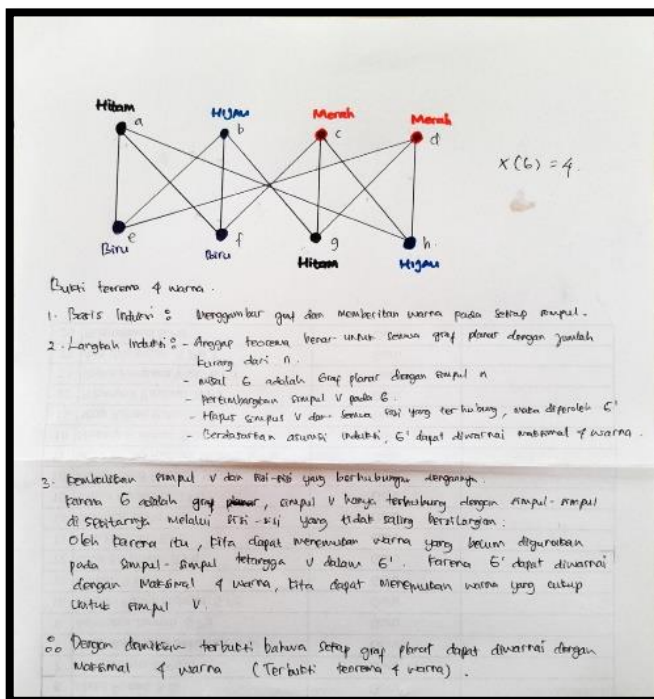 Hitam
a
HIJAU
b
Merah
c
Merah
d
X(6) = 4.
e
Biru
f
Biru
g
Hitam
h
HIJAU
Bukti teorema 4 warna.
1. Basis Induksi : Menggambar graf dan memberikan warna pada setiap simpul.
2. Langkah Induksi : - Anggap teorema benar untuk semua graf planar dengan jumlah
kurang dari n.
- misal G adalah Graf planar dengan simpul n
- pertimbangkan simpul V pada G.
- Hapus simpus V dan semua sisi yang terhubung, maka diperoleh G'
- Berdasarkan asumsi induksi, G' dapat diwarnai maksimal 4 warna.
3. Kembalikan simpul V dan sisi-sisi yang berhubungan dengannya.
Karena G adalah graf planar, simpul V hanya terhubung dengan simpul-simpul
di sekitarnya melalui sisi-sisi yang tidak saling bersilangan.
Oleh karena itu, kita dapat menemukan warna yang belum digunakan
pada simpul-simpul tetangga V dalam G'. Karena G' dapat diwarnai
dengan Maksimal 4 warna, kita dapat menemukan warna yang cukup
untuk simpul V.
∴ Dengan demikian terbukti bahwa setiap graf planar dapat diwarnai dengan
Maksimal 4 warna (Terbukti teorema 4 warna).